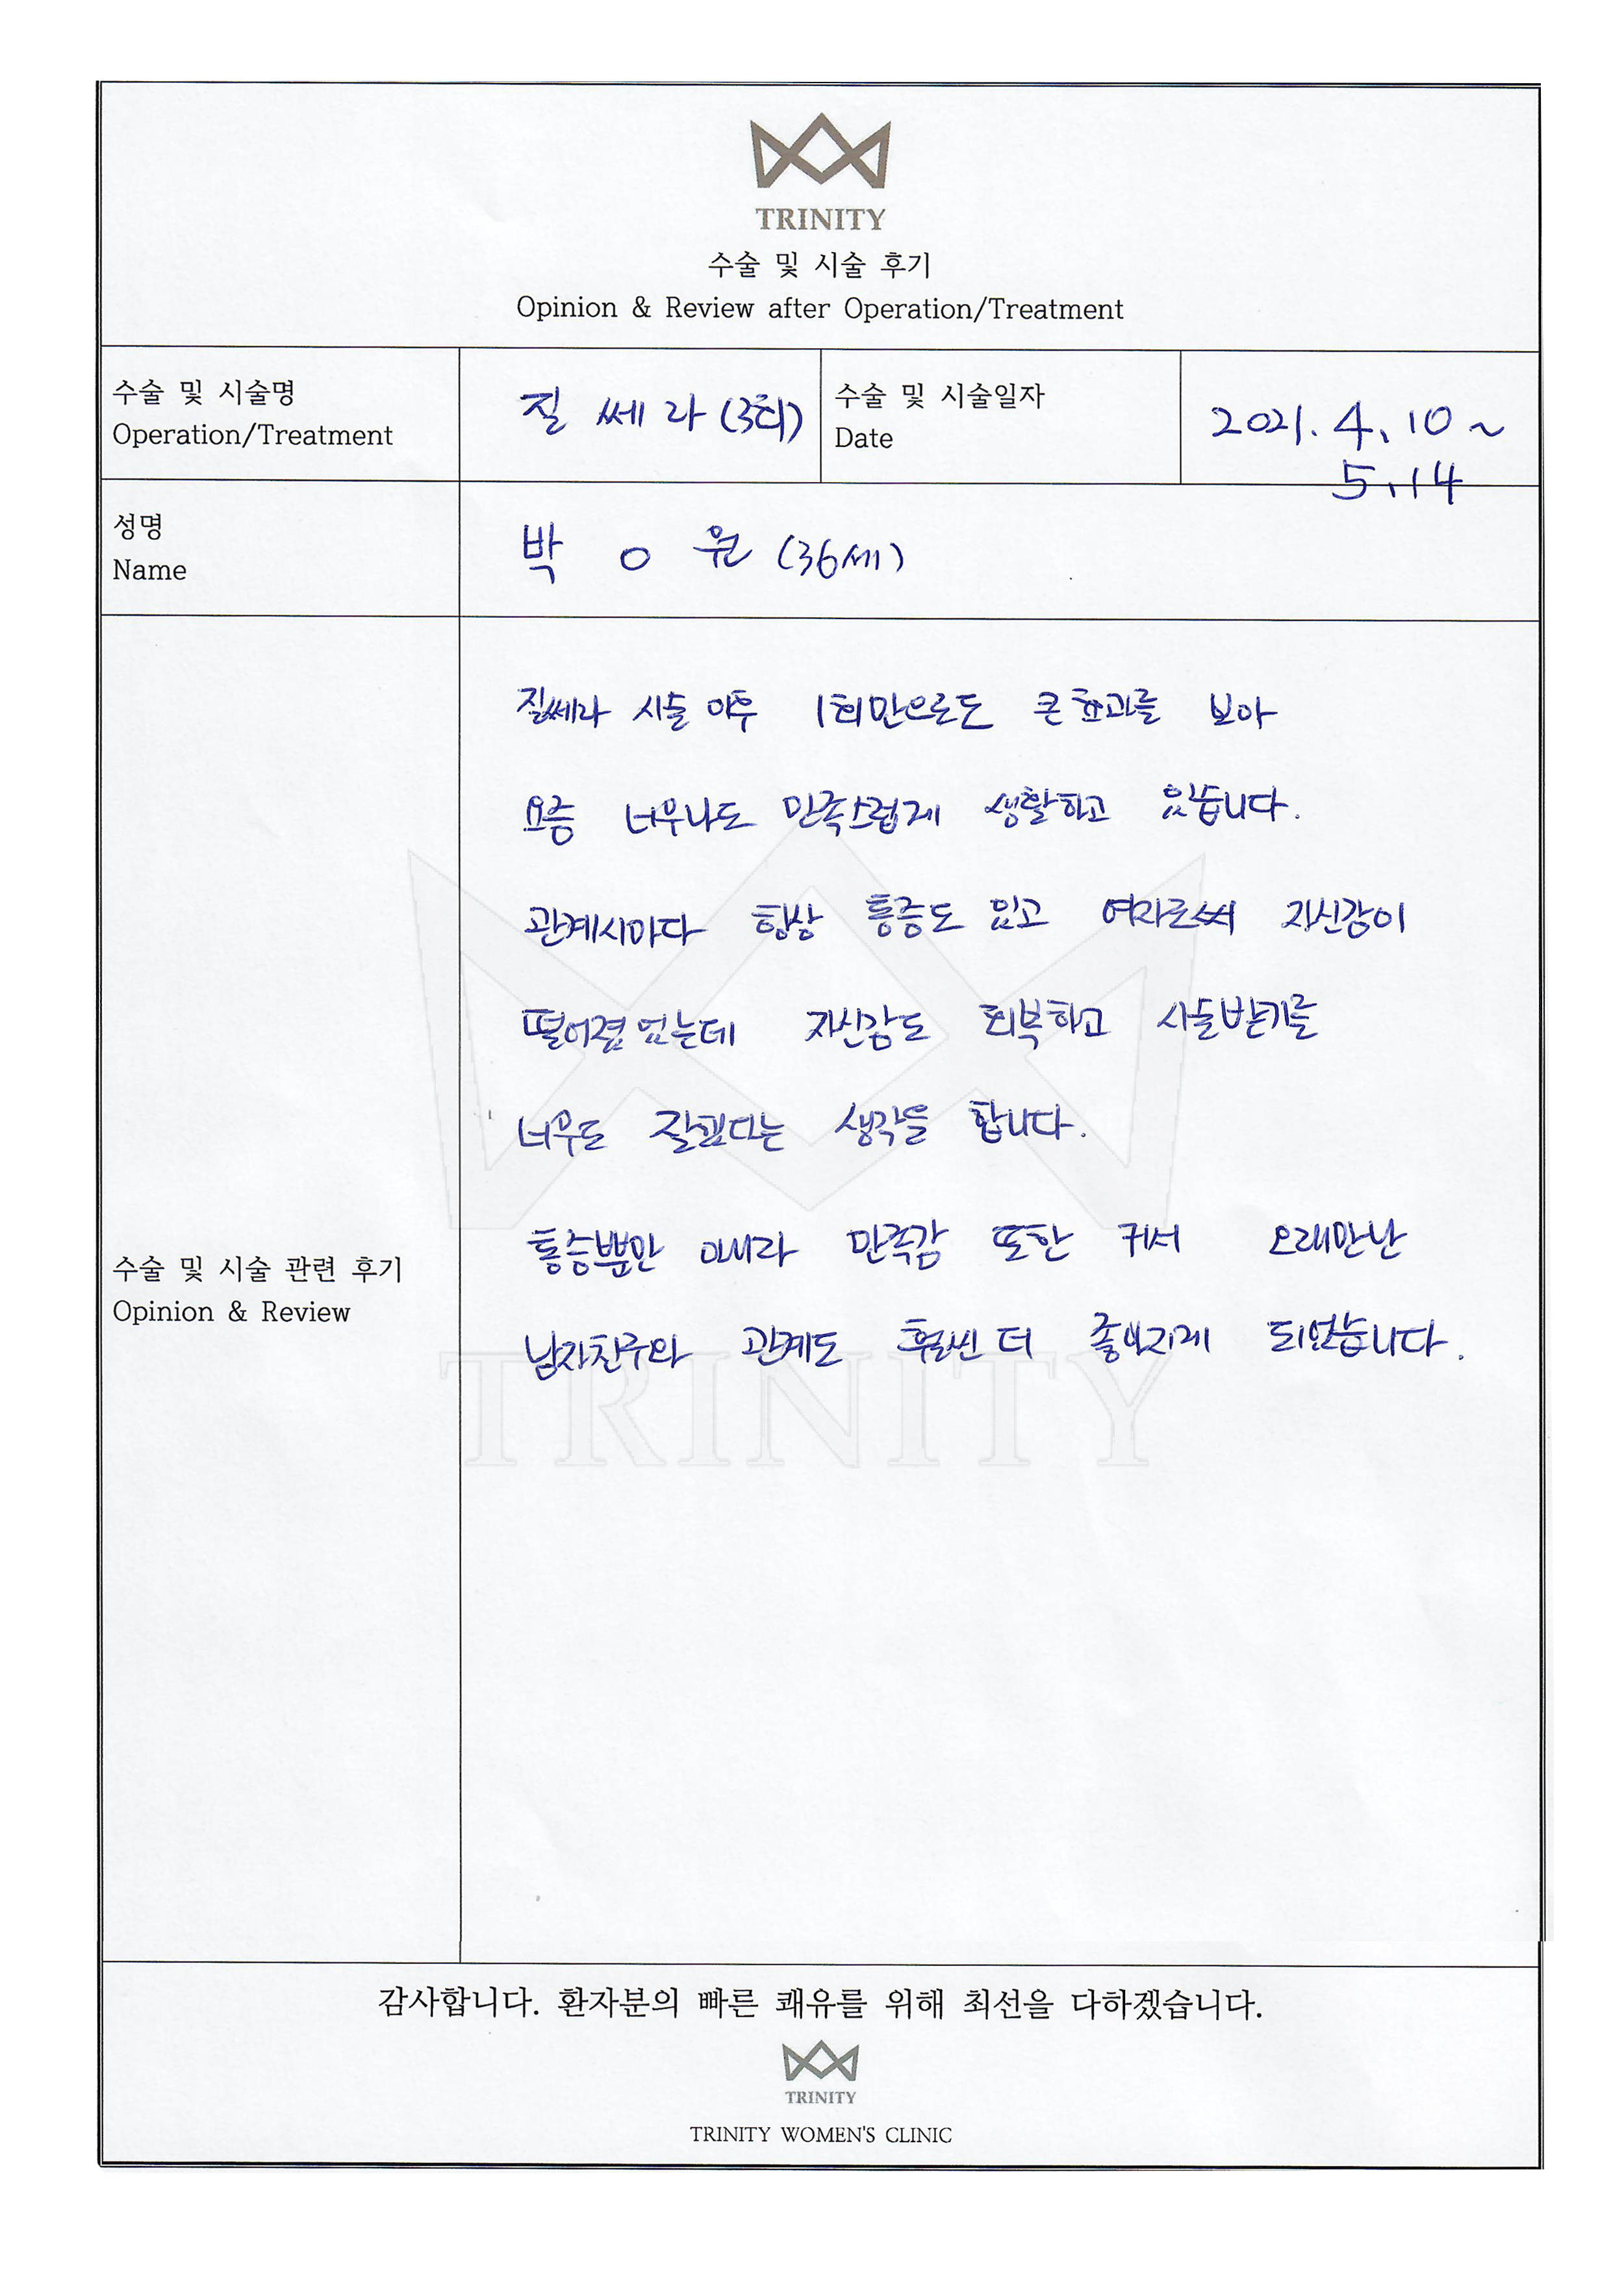 TRINITY
수술 및 시술 후기
Opinion & Review after Operation/Treatment
수술 및 시술명
Operation/Treatment
질 쎄 라 (3회)
수술 및 시술일자
Date
2021. 4. 10 ~
5. 14
성명
Name
박 ㅇ 원 (36세)
질쎄라 시술 이후 1회만으로도 큰 효과를 보아
요즘 너무나도 만족스럽게 생활하고 있습니다.
관계시마다 항상 통증도 있고 여자로써 자신감이
떨어졌었는데 자신감도 회복하고 시술받기를
너무도 잘했다는 생각을 합니다.
통증뿐만 아니라 만족감 또한 커서 오래만난
남자친구와 관계도 훨씬 더 좋아지게 되었습니다.
수술 및 시술 관련 후기
Opinion & Review
TRINITY
감사합니다. 환자분의 빠른 쾌유를 위해 최선을 다하겠습니다.
TRINITY
TRINITY WOMEN'S CLINIC